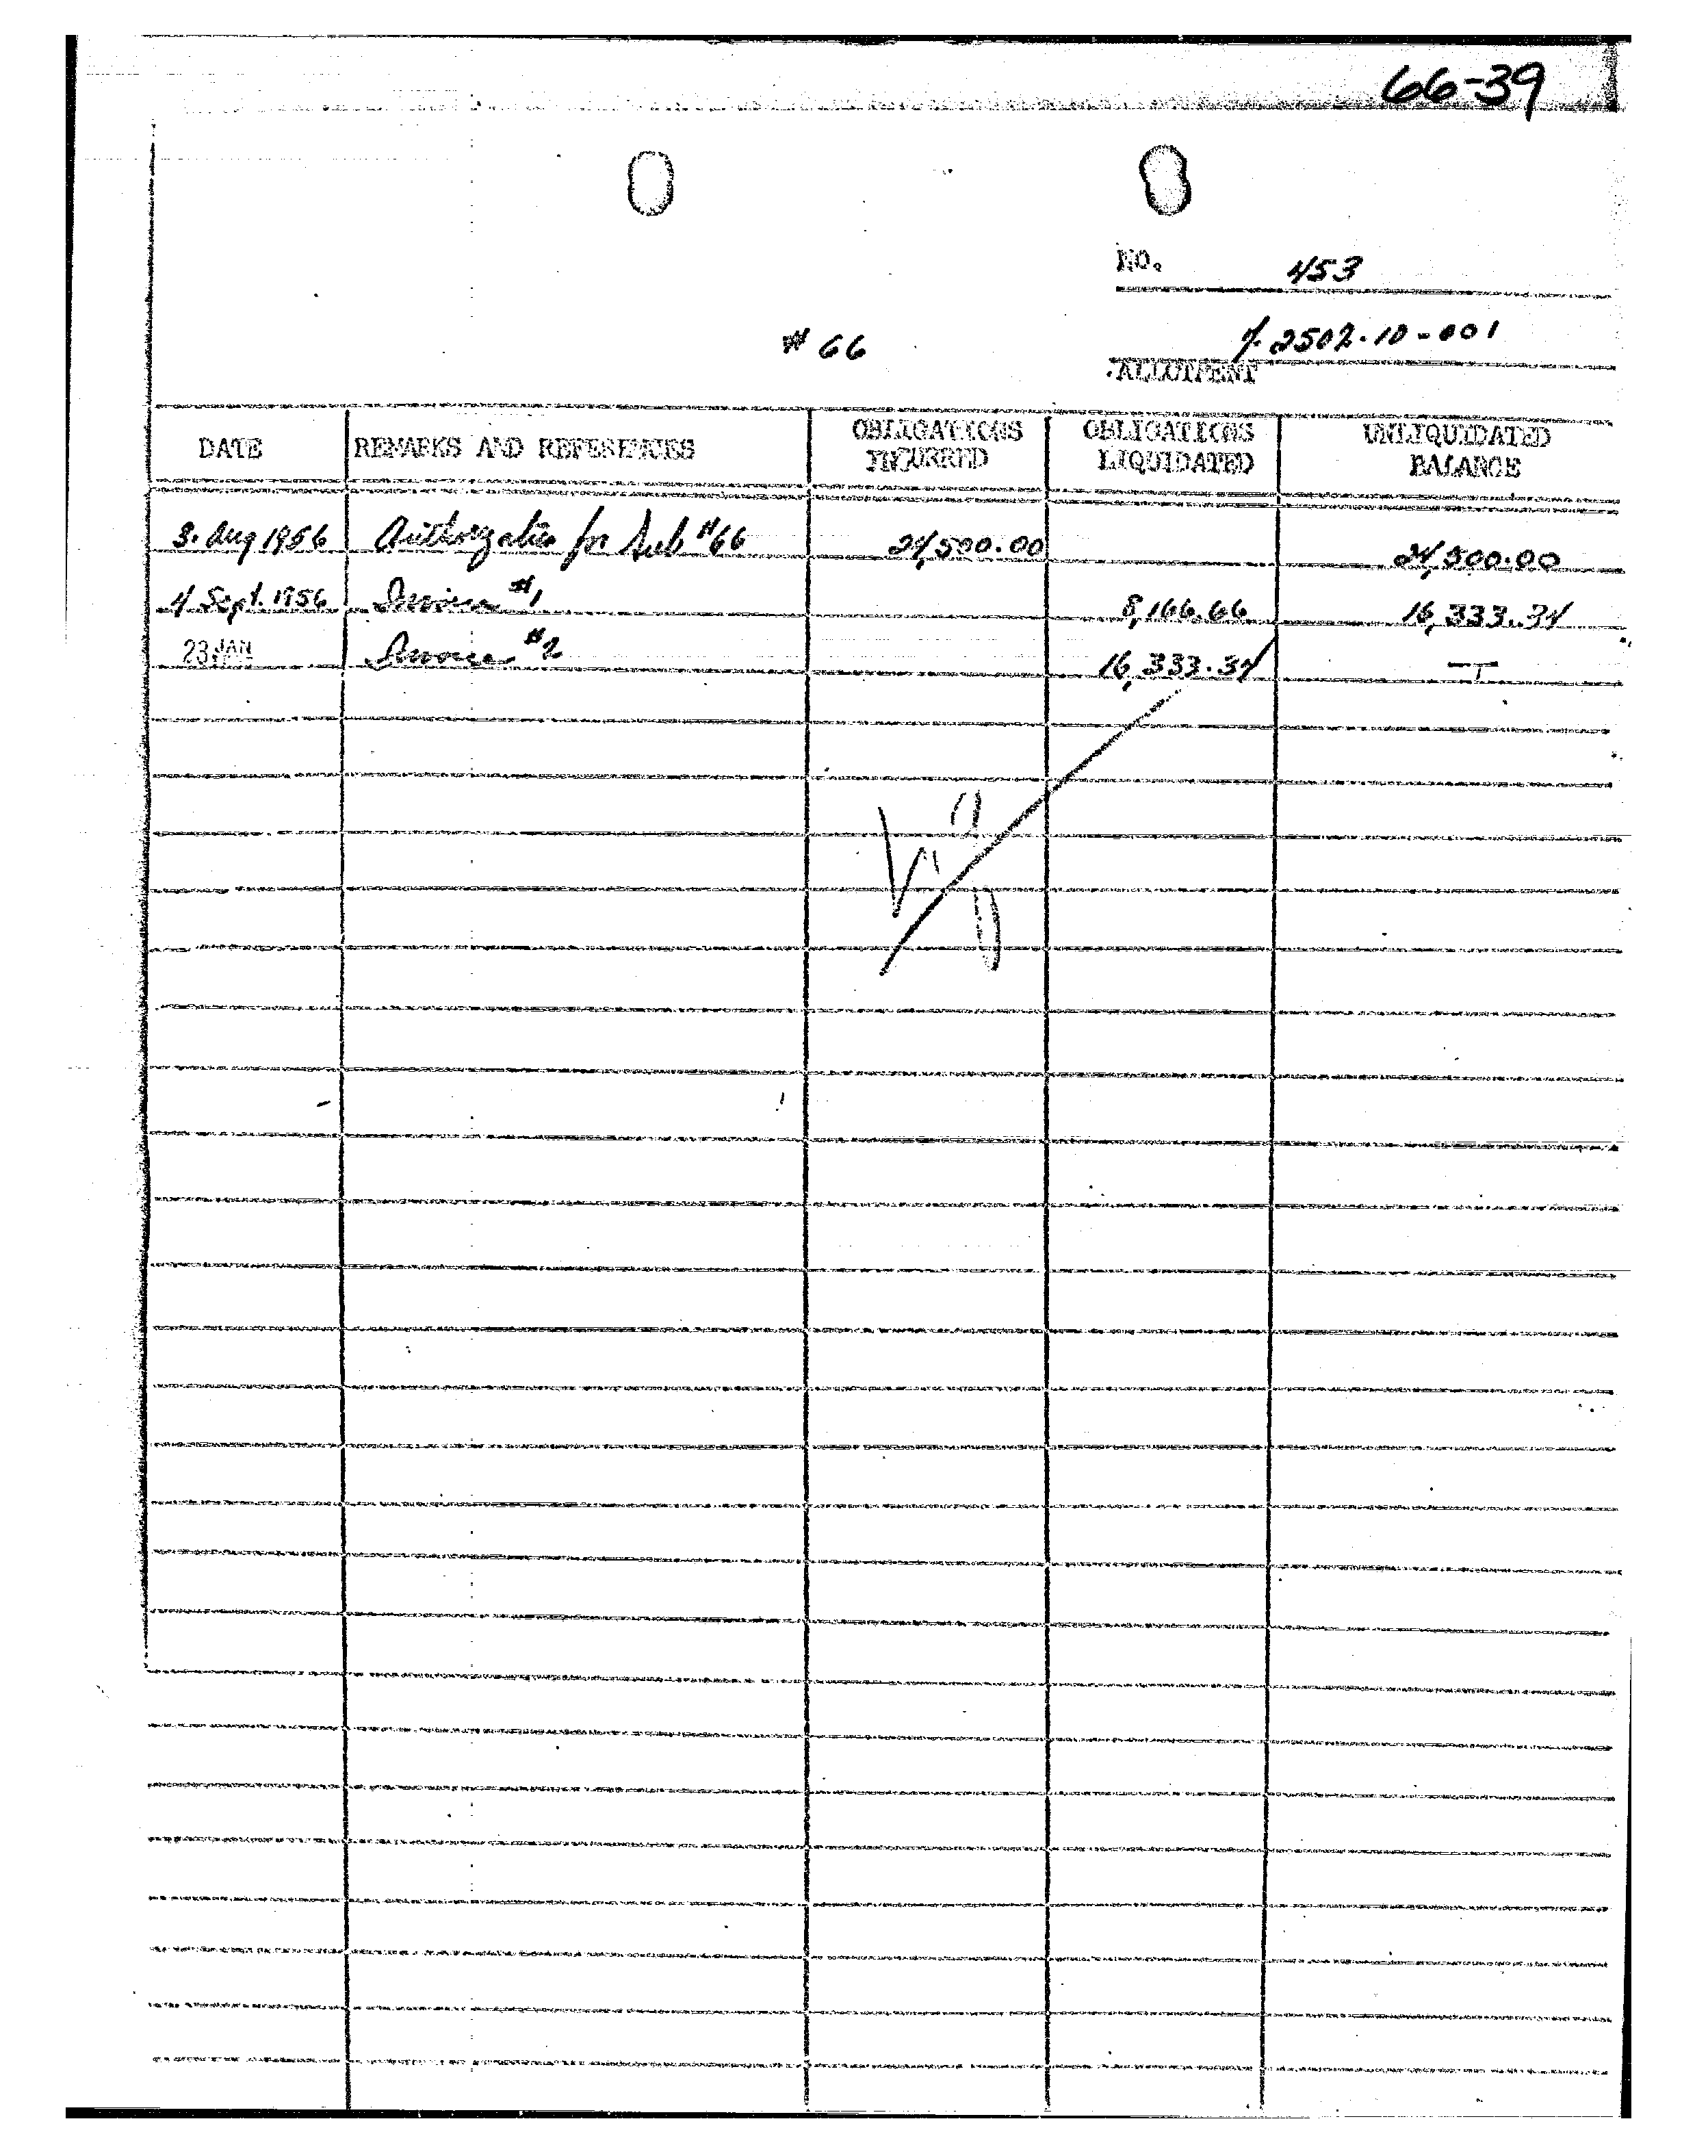 66-39
NO. 453
# 66
2502-10-001
ALLOTMENT
DATE REMARKS AND REFERENCES OBLIGATIONS INCURRED OBLIGATIONS LIQUIDATED UNLIQUIDATED BALANCE
3. Aug 1956 Authorization for Sub #66 24,500.00 24,500.00
4 Sept. 1956 Invoice #1 8,166.66 16,333.34
23 JAN Invoice #2 16,333.34 —